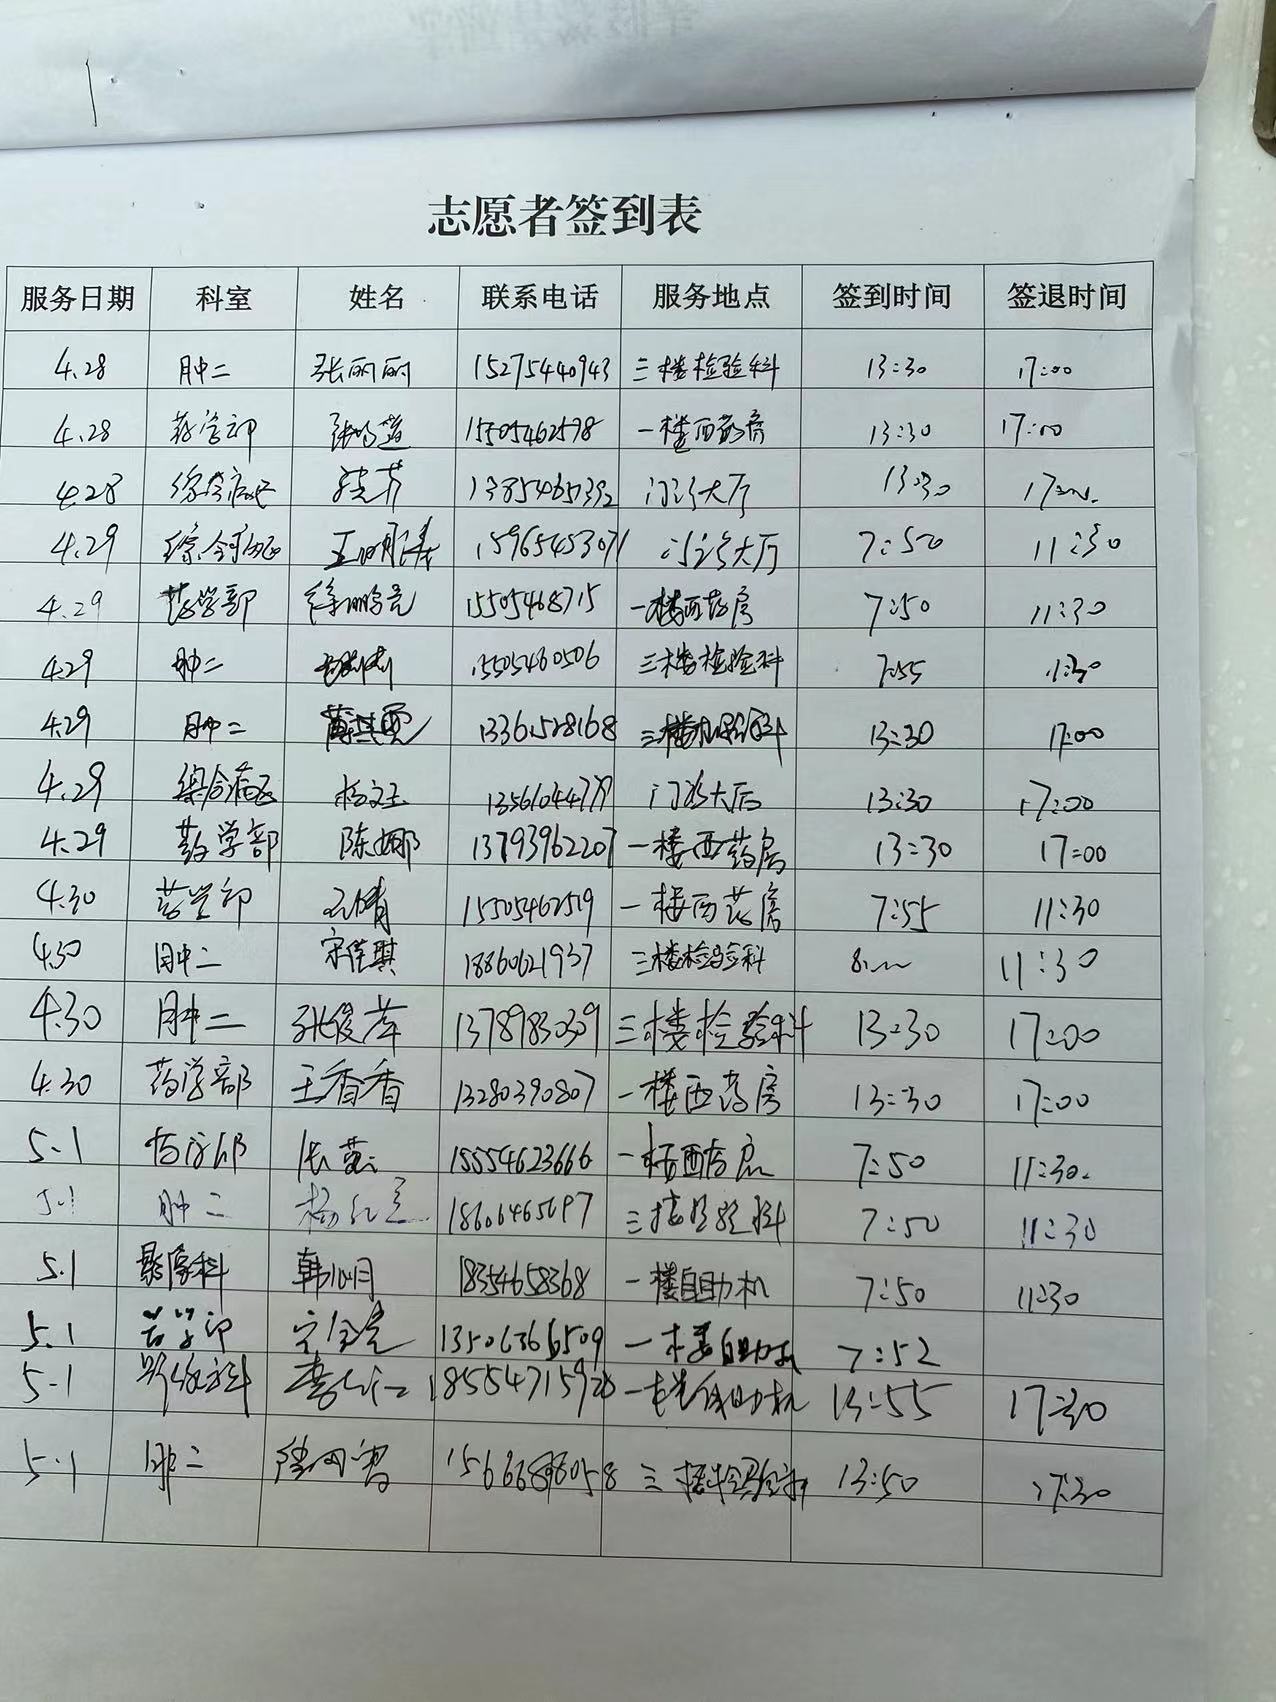 志愿者签到表
服务日期 科室 姓名 联系电话 服务地点 签到时间 签退时间
4.28 肿二 张丽丽 15275440943 三楼检验科 13:30 17:00
4.28 药学部 15505462598 一楼西药房 13:30 17:00
4.28 综合病区 门诊大厅 13:30
4.29 综合病区 门诊大厅 7:50 11:30
4.29 药学部 徐鹏亮 15505468715 一楼西药房 7:50 11:30
4.29 肿二 15505460506 三楼检验科 7:55 11:30
4.29 肿二 三楼检验科 13:30 17:00
4.29 综合病区 杨文玉 门诊大厅 13:30 17:00
4.29 药学部 陈娜 13793962207 一楼西药房 13:30 17:00
4.30 药学部 15505462519 一楼西药房 7:55 11:30
4.30 肿二 宋佳琪 18860621937 三楼检验科 11:30
4.30 肿二 张俊萍 13789830309 三楼检验科 13:30 17:00
4.30 药学部 王香香 13280390807 一楼西药房 13:30 17:00
5.1 药学部 15554623666 一楼西药房 7:50 11:30.
5.1 肿二 三楼检验科 7:50 11:30
5.1 影像科 18354658368 一楼自助机 7:50 11:30
5.1 药学部 一楼自助机 7:52
5.1 影像科 自助机 13:55 17:30
5.1 肿二 三楼检验科 13:50 17:30